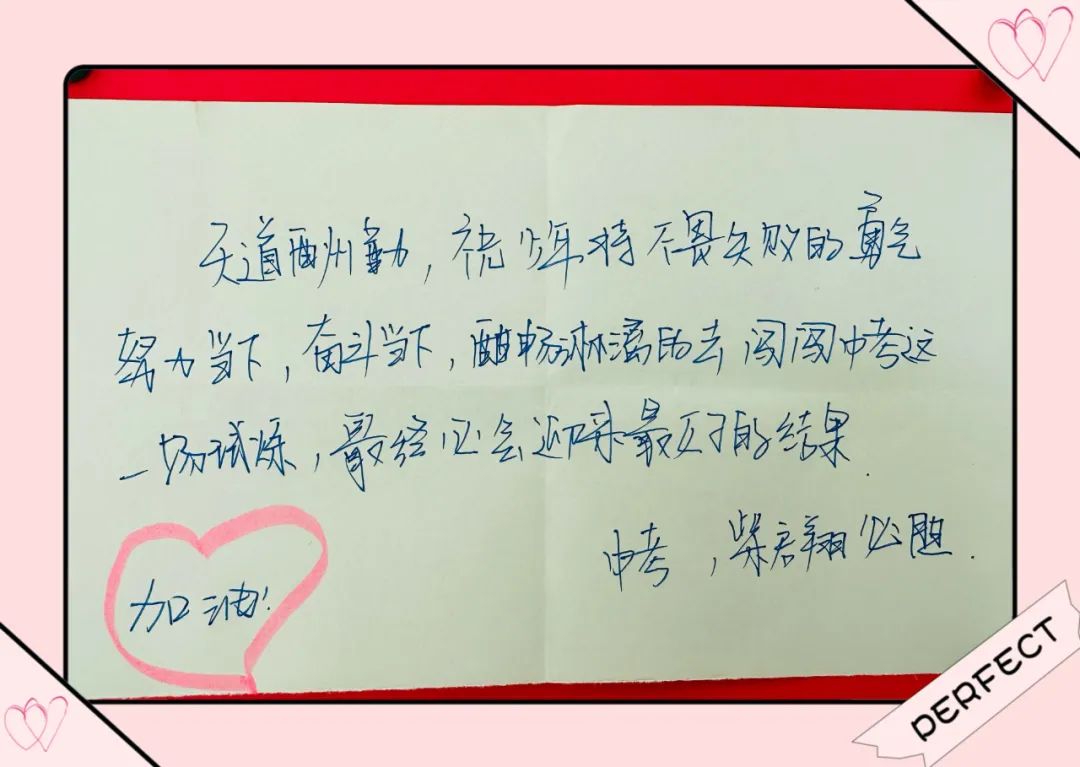 天道酬勤，祝少年持不畏失败的勇气
努力当下，奋斗当下，酣畅淋漓的去闯闯中考这
一场试炼，最终必会迎来最好的结果.
中考，柴君翔必胜.
加油！
PERFECT